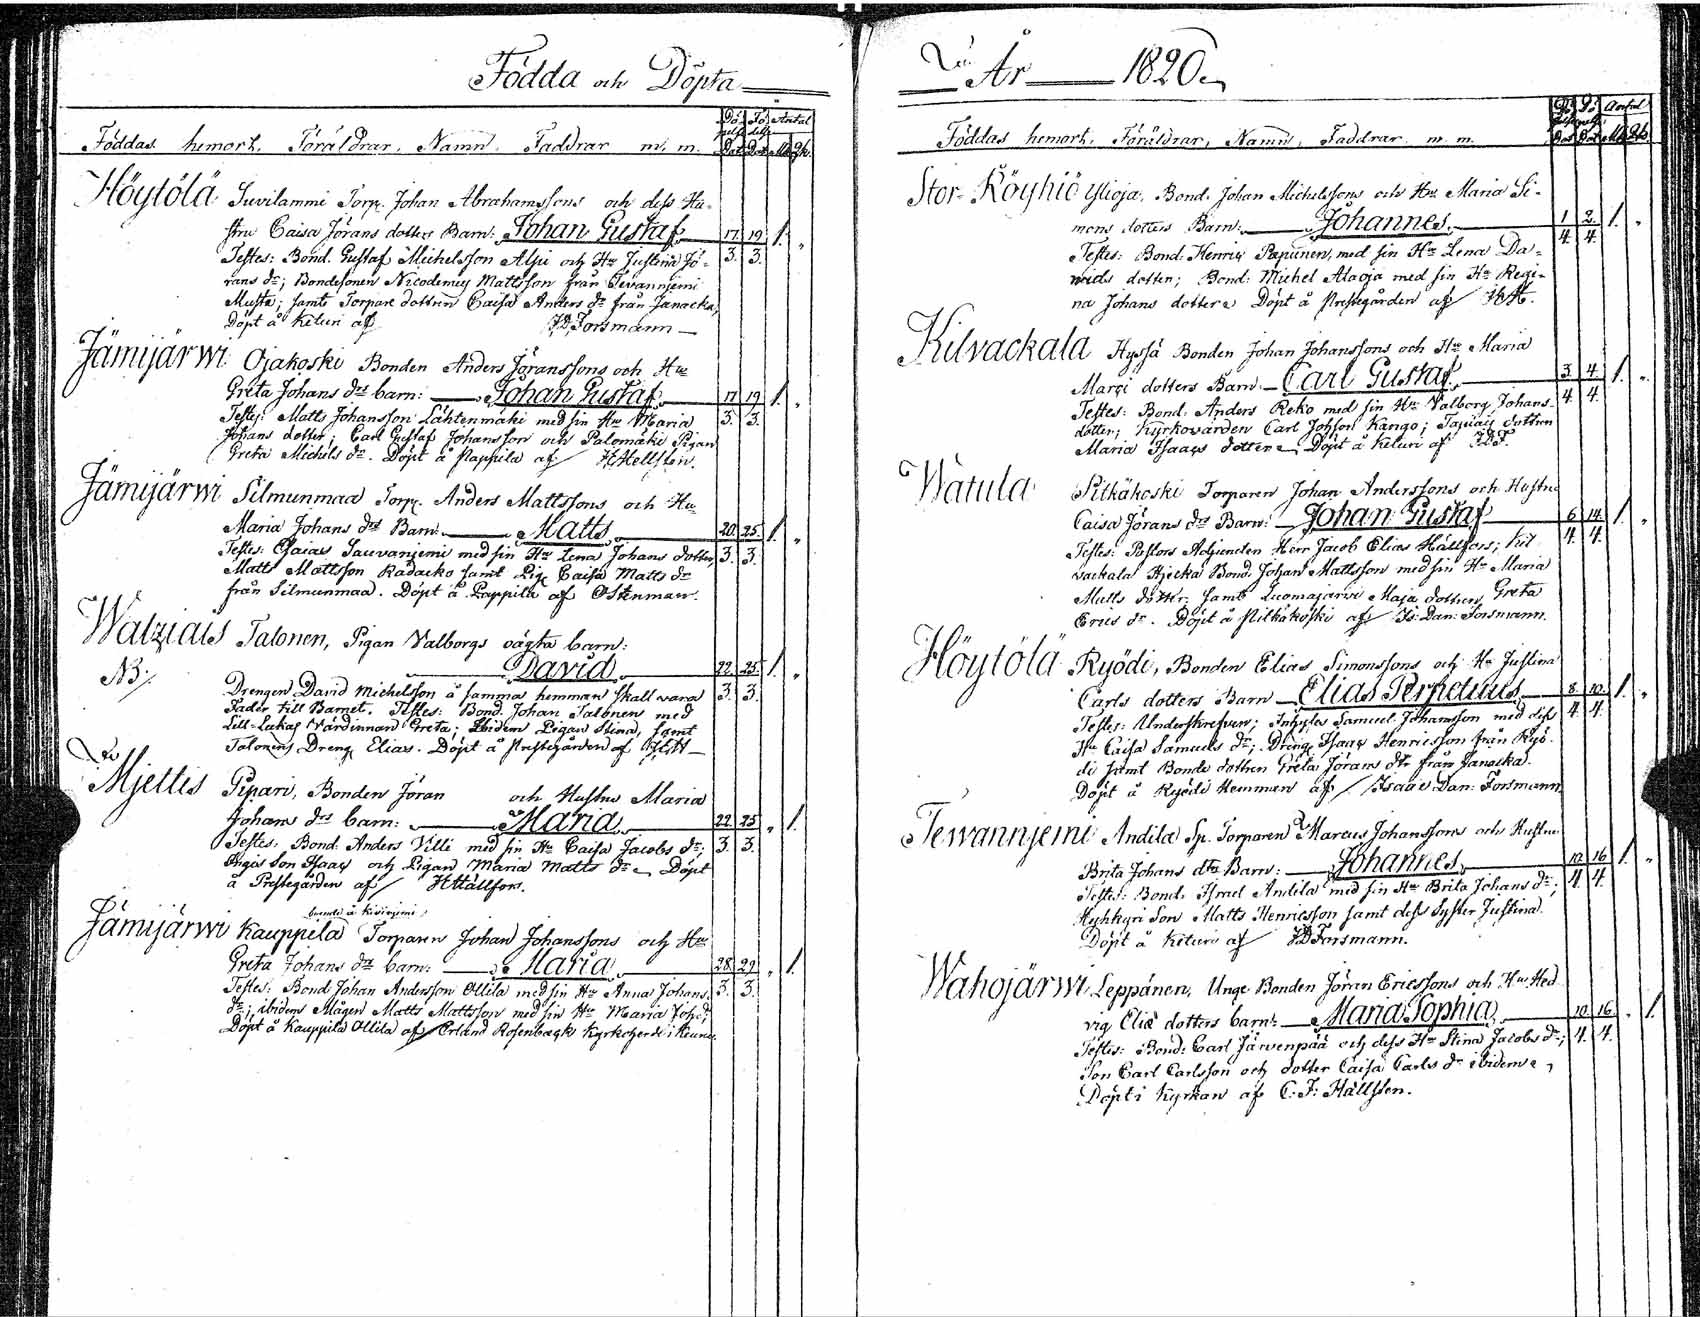 Födda och Döpta
Föddas hemort, Föräldrar, Namn, Faddrar m. m.
Antal
Höytölä Suvilammi Torp. Johan Abrahamssons och dess Hu-
stru Caisa Jörans dotters Barn: Johan Gustaf 17 19 1.
Testes: Bond. Gustaf Michelsson Alpi och Hu Justina Jö- 3. 3.
rans dr; Bondesonen Nicodemus Mattsson från Tevannjemi
Musta; samt Torpare dottren Caisa Anders dr från Janacka,
Döpt å Keturi af JDForsmann
Jämijärwi Ojakoski Bonden Anders Jöranssons och Hu
Greta Johans drs barn: Johan Gustaf 17 19 1.
Testes: Matts Johansson Lähtenmäki med sin Hu Maria 3. 3.
Johans dotter; Carl Gustaf Johansson och Palomäki Pigan
Greta Michels dr. Döpt å Pappila af HHellsten.
Jämijärwi Silmunmaa Torp. Anders Mattssons och Hu
Maria Johans drs Barn Matts 20. 25. 1.
Testes: Esaias Sauvanjemi med sin Hu Lena Johans dotter, 3. 3.
Matts Mattsson Rådacko samt Pig. Caisa Matts dr
från Silmunmaa. Döpt å Pappila af OStenman.
Talonen, Pigan Valborgs oägta barn:
NB David 22. 25. 1.
Drengen David Michelsson å samma hemman skall vara 3. 3.
Fader till Barnet. Testes: Bond. Johan Talonen med
Lill-Lukas Värdinnan Greta; Ibidem Pigan Stina, samt
Talonens Dreng Elias. Döpt å Prestegården af
Mjettis Pipari, Bonden Jöran och Hustru Maria
Johans drs barn: Maria 22. 25. 1.
Testes: Bond. Anders Villi med sin Hu Caisa Jacobs dr; 3. 3.
Son Isaac och Pigan Maria Matts dr Döpt
å Prestegården af HHällfors.
Jämijärwi Kauppila Torparen Johan Johanssons och Hu
Greta Johans drs barn: Maria 28. 29. 1.
Testes: Bond Johan Andersson Ollila med sin Hu Anna Johans 3. 3.
dr; ibidem Mågen Matts Mattsson med sin Hu Maria Joh: dr
Döpt å Kauppila Ollila af Erland Rosenback Kyrkoherde i
År 1820
Föddas hemort, Föräldrar, Namn, Faddrar m. m.
Antal
Stor-Röyhiö Ylioja, Bond. Johan Michelssons och Hu Maria Si-
mons dotters Barn: Johannes 1 2. 1.
Testes: Bond: Henric Papunen, med sin Hu Lena Da- 4. 4.
vids dotter; Bond: Michel Alaoja med sin Hu Regi-
na Johans dotter Döpt å Prestegården af HH.
Kilvackala Hyssä Bonden Johan Johanssons och Hu Maria
Marci dotters Barn: Carl Gustaf 3. 4. 1.
Testes: Bond. Anders Reko med sin Hu Valborg Johans 4 4.
dotter; Kyrkovärden Carl Johsson Kango; dottren
Maria Isaacs dotter Döpt å Keturi af JDF.
Watula Pitkäkoski Torparen Johan Anderssons och Hustru
Caisa Jörans drs Barn: Johan Gustaf 6 14 1.
Testes: Pastors Adjuncten Herr Jacob Elias Hällfors; Kil 4. 4.
vackala Hjecka Bond. Johan Mattsson med sin Hu Maria
Matts dotter. samt Luomajärvi Maja dottren Greta
Erics dr. Döpt å Pitkäkoski af Is: Dan: Forsmann.
Höytölä Ryödi, Bonden Elias Simonssons och Hu Justina
Carls dotters Barn Elias Perpetuus 8. 10. 1.
Testes: Underskrefven; Inhyses Samuel Johansson med dess 4 4.
Hu Caisa Samuels dr; Dreng. Isaac Henricsson från Ryö-
di samt Bonde dottren Greta Jörans dtr från Janacka.
Döpt å Ryödi Hemman af Isaac Dan: Forsmann
Tewannjemi Andila Sp. Torparen Marcus Johanssons och Hustru
Brita Johans dtrs Barn: Johannes 10 16 1.
Testes: Bond. Israel Andila med sin Hu Brita Johans dr; 4. 4.
Hyhkyri Son Matts Henricsson samt dess Syster Justina.
Döpt å Keturi af JDForsmann.
Wahojärwi Leppänen, Unge Bonden Jöran Ericssons och Hu Hed
vig Eliæ dotters barn: Maria Sophia 10. 16 1.
Testes: Bond: Carl Järvenpää och dess Hu Stina Jacobs dr; 4. 4.
Son Carl Carlsson och dotter Caisa Carls dr ibidem
Döpt i Kyrkan af C: F: Hällsten.